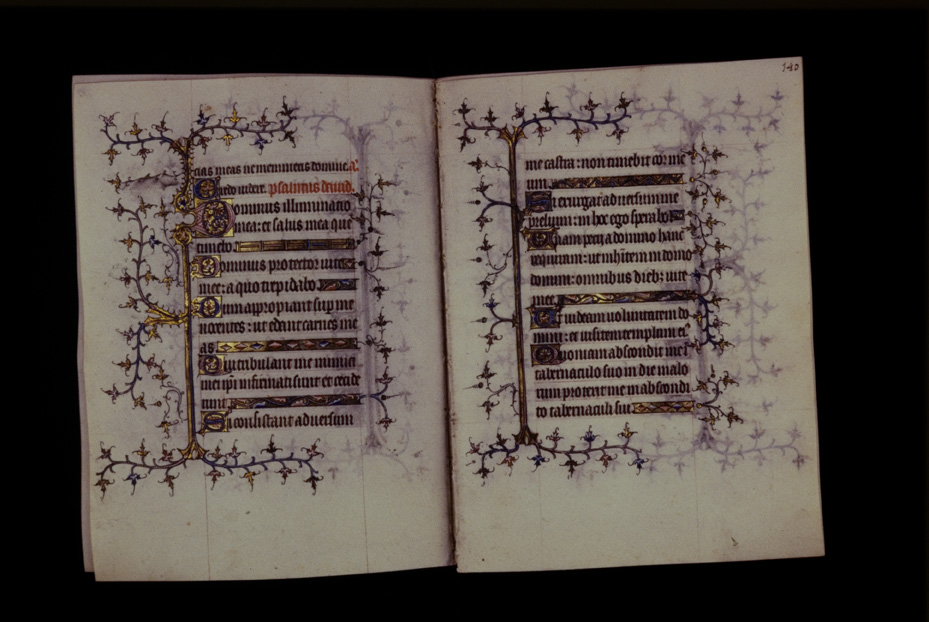 cias meas ne memineris domine. a.
Credo videre. psalmus dauid.
Dominus illuminatio
mea: et salus mea que
timebo
Dominus protector vite
mee: a quo trepidabo
Dum appropiant sup me
nocentes: ut edant carnes me
as
Qui tribulant me inimici
mei ipi infirmati sunt et cecide
runt
Si consistant aduersum
140
me castra: non timebit cor me
um
Si exurgat aduersum me
prelium: in hoc ego sperabo
Unam pecij a domino hanc
requiram: ut inhitem in domo
domini: omnibus dieb; vite
mee
Ut videam uoluntatem do
mini: et visitem templum ei'
Quoniam abscondit me i
tabernaculo suo in die malo
rum protexit me in abscondi
to tabernaculi sui